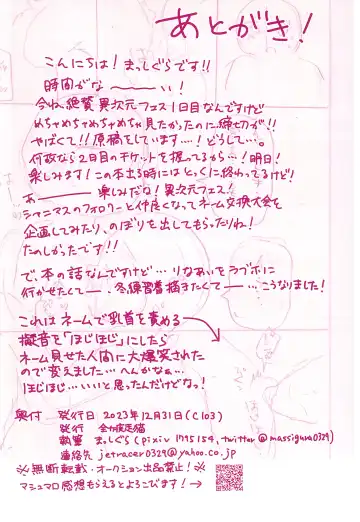 あとがき!
こんにちは! まっしぐらです!!
時間がな〜〜い!
今ね、絶賛異次元フェス1日目なんですけど
めちゃめちゃめちゃめちゃ見たかったのに締切が!!
やばくて!! 原稿をしています…! どうして…。
何故なら2日目のチケットを握ってるから…! 明日!
楽しみます! この本出る時にはとっくに終わってるけど!
あ〜〜楽しみだな! 異次元フェス!
シャニマスのフォロワーと仲良くなってネーム交換大会を
企画してみたり、のぼりを出してもらったりね!
たのしかったです!!
で、本の話なんですけど… りなあいをラブホに
行かせたくて〜、冬練習着描きたくて〜…こうなりました!
これはネームで乳首を責める
擬音を「ほじほじ」にしたら
ネーム見せた人間に大爆笑された
ので変えました… へんかなぁ…
ほじほじ…いいと思ったんだけどなっ!
奥付 発行日 2023年12月31日(C103)
発行 全力疾走猫
執筆 まっしぐら(pixiv 1795154, twitter @massigura0329)
連絡先 jetracer0329@yahoo.co.jp
※無断転載・オークション出品禁止!※
マシュマロ感想もらえるとよろこびます!→